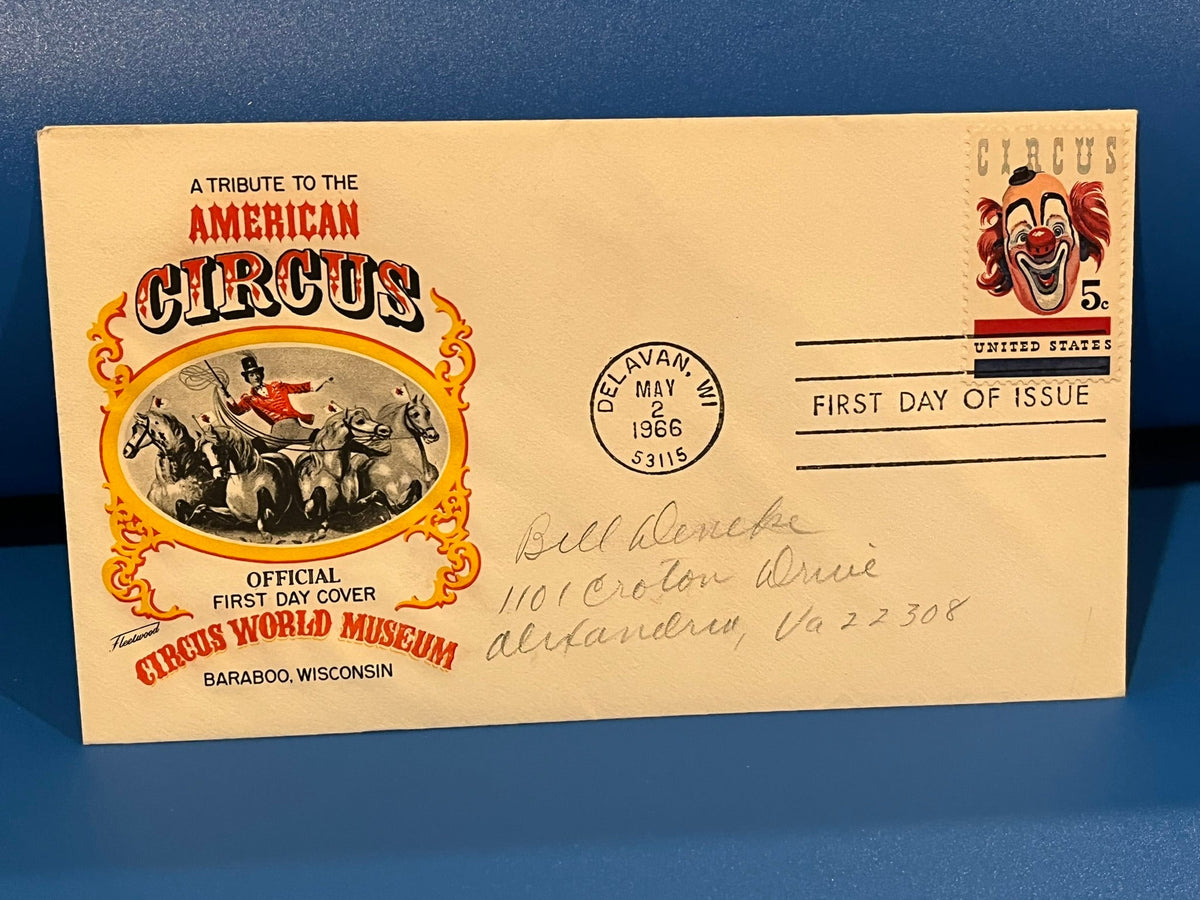 A TRIBUTE TO THE
AMERICAN
CIRCUS
OFFICIAL
FIRST DAY COVER
CIRCUS WORLD MUSEUM
BARABOO, WISCONSIN
Fleetwood
DELAVAN, WI
MAY
2
1966
53115
CIRCUS
5c
UNITED STATES
FIRST DAY OF ISSUE
Bill Deneke
1101 Croton Drive
Alexandria, Va 22308